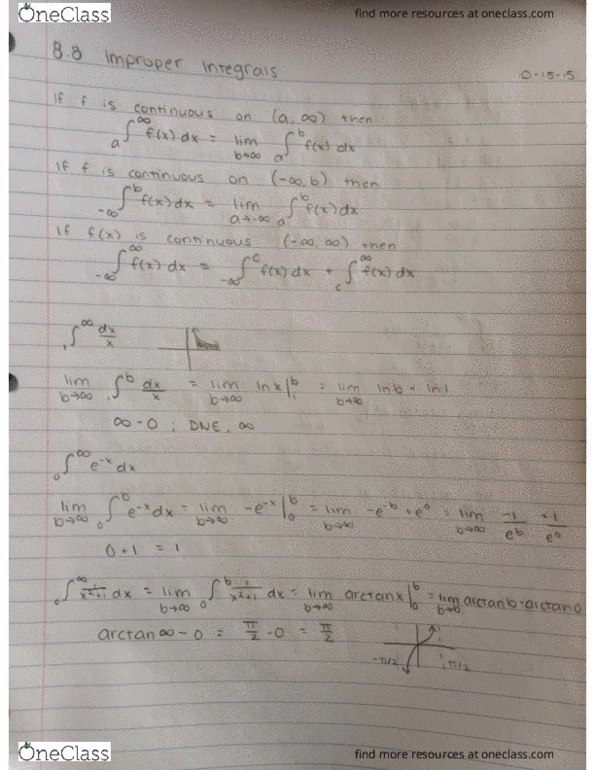 OneClass
find more resources at oneclass.com
8.8 Improper Integrals
0-15-15
If f is continuous on (a, ∞) then
a∫^∞ f(x) dx = lim b→∞ a∫^b f(x) dx
If f is continuous on (-∞, b) then
-∞∫^b f(x) dx = lim a→-∞ a∫^b f(x) dx
If f(x) is continuous (-∞, ∞) then
-∞∫^∞ f(x) dx = -∞∫^c f(x) dx + c∫^∞ f(x) dx
1∫^∞ dx/x
lim b→∞ 1∫^b dx/x = lim b→∞ ln x |1^b = lim b→∞ ln b - ln 1
∞ - 0 ; DNE, ∞
0∫^∞ e^-x dx
lim b→∞ 0∫^b e^-x dx = lim b→∞ -e^-x |0^b = lim b→∞ -e^-b + e^0 = lim b→∞ -1/e^b +1/e^0
0 + 1 = 1
0∫^∞ 1/x²+1 dx = lim b→∞ 0∫^b 1/x²+1 dx = lim b→∞ arctan x |0^b = lim b→∞ arctan b - arctan 0
arctan ∞ - 0 = π/2 - 0 = π/2
-π/2 π/2
OneClass
find more resources at oneclass.com